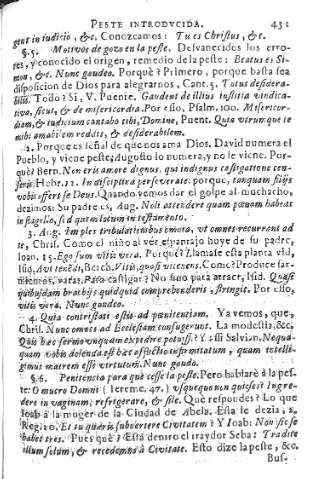 PESTE INTRODVCIDA. 431
gent in iudicio, &c. Conozcamos: Tu es Christus, &c.
§. 5. Motivos de gozo en la peste. Desvanecidos los erro-
res, y conocido el origen, remedio de la peste: Beatus es Si-
mon, &c. Nunc gaudeo. Porquè? Primero, porque basta sea
disposicion de Dios para alegrarnos, Cant. 5. Totus desidera-
bilis. Todo? Si, V. Puente. Gaudent de illius iustitia vindica-
tiva, sicut, & de misericordia. Por esso, Psalm. 100. Misericor-
diam, & iudicium cantabo tibi, Domine, Puent. Quia utrumque te
mihi amabilem reddit, & desiderabilem.
2. Porque es señal de que nos ama Dios. David numera el
Pueblo, y viene peste; Augusto lo numera, y no le viene. Por-
què? Bern. Non eris amore dignus, qui indignus castigatione cen-
seris. Hebr. 12. In disciplina perseverate: porque, tanquam filijs
vobis offert se Deus. Quando vemos dar el golpe al muchacho,
dezimos: Su padre es, Aug. Noli attendere quam pœnam habeas
in flagello, sed quem locum in testamento.
3. Aug. Imples tribulationibus omnia, ut omnes recurrent ad
te, Christ. Como el niño al vèr el pantajo huye de su padre,
Ioan. 15. Ego sum vitis vera. Porquè? Llamale esta planta vid,
Isid, Avi tendis, Berch. Vitis, quasi vitenens. Como? Produce sar-
mientos, varas. Para castigar? No sino para atraer, Isid. Quasi
quibusdam brachijs quidquid comprehenderis, stringit. Por esso,
vitis vera. Nunc gaudeo.
4. Quia contristati estis ad pœnitentiam. Ya vemos, que,
Chris. Nunc omnes ad Ecclesiam consugerunt. La modestia, &c.
Quis hæc sermo unquam expedire potuisset? Y assi Salvian. Nequa-
quam vobis dolenda est hæc afflictio infirmitatum, quam intelli-
gimus matrem esse virtutum. Nunc gaudeo.
§. 6. Penitencia para què cesse la peste. Pero hablarè à la pes-
te: O mucro Domini (Ierem. 47.) usquequo non quiesces? Ingre-
dere in vaginam, refrigerare, & sile. Què respondes? Lo que
Ioab à la muger de la Ciudad de Abela. Esta le dezia, 2.
Reg. 20. Et tu quæris subvertere Civitatem? Y Ioab: Non sic se
habet res. Pues què? Està dentro el traydor Seba: Tradite
illum solum, & recedemus à Civitate. Esto dize la peste, &c.
Bus-